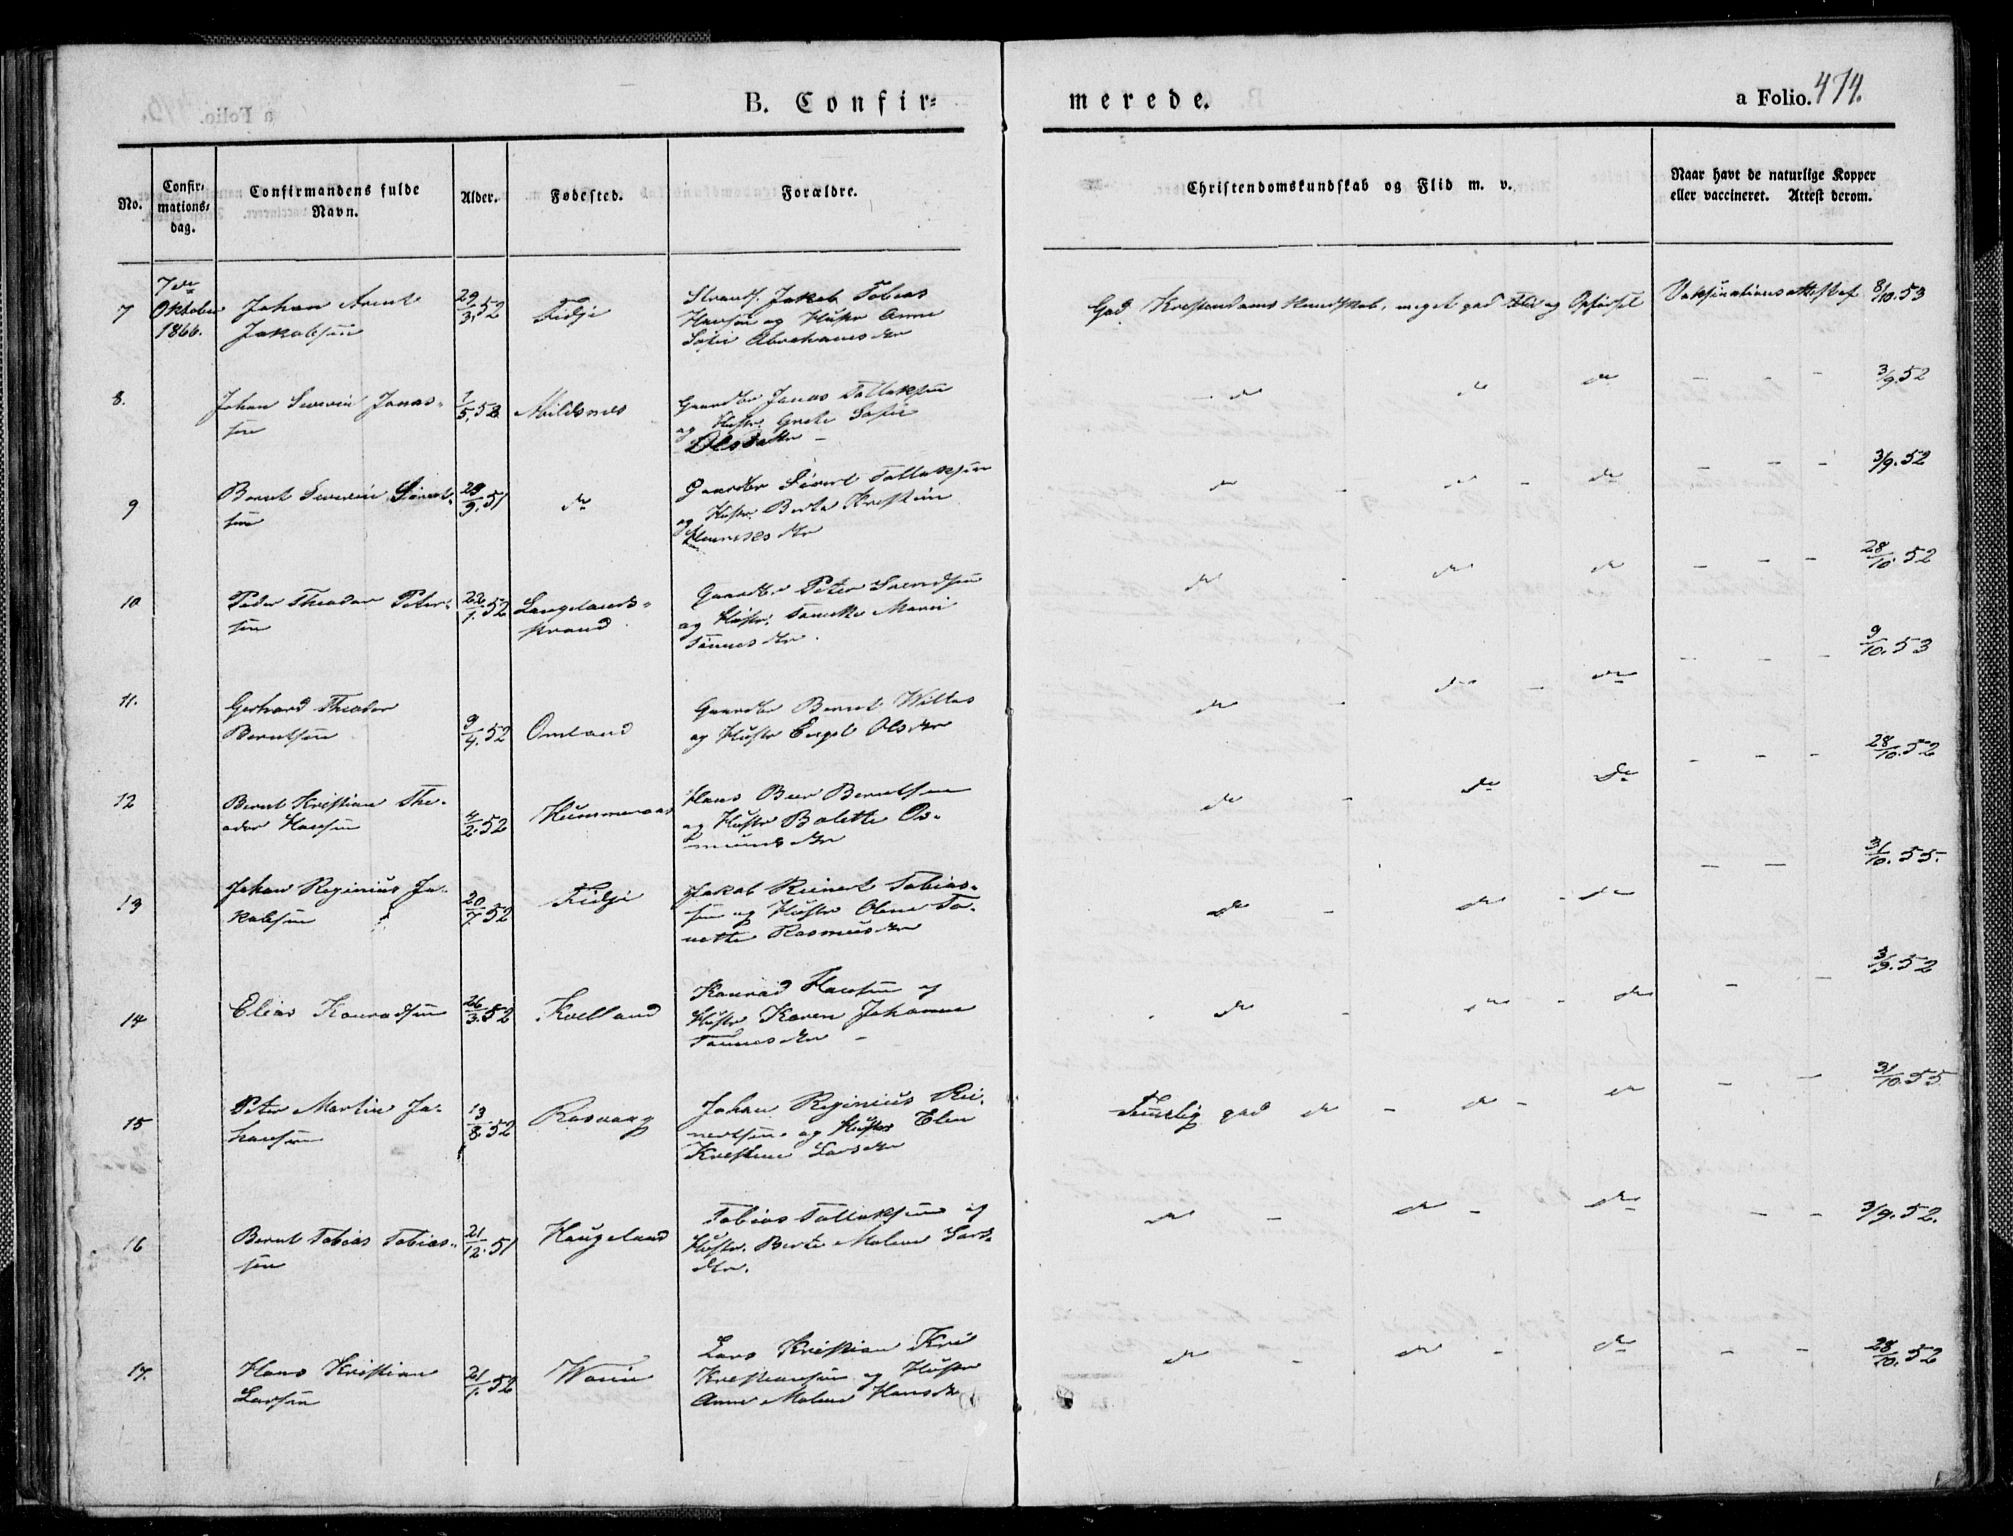 B. Confir=
merede.
a Folio. 474.
No.
Confir=
mations=
dag.
Confirmandens fulde
Navn.
Alder.
Fødested.
Forældre.
Christendomskundskab og Flid m. v.
Naar havt de naturlige Kopper
eller vaccineret. Attest derom.
7de
7 Oktober Johan Arent 29/3. 52 Fidje Strands. Jakob Tobias
1866. Jakobsen Hansen og Hustr Anne
Sofie Abrahamsdtr
God Kristendoms Kundskab, meget god Flid og Opførsel Vaksinationsattest af 8/10. 53
8. Johan Severin Jonas= 7/5. 52 Mildsnes Gaardbr Jonas Tollaksen
sen og Hustr. Grete Sofie
Olsdatter
do do do 3/9. 52
9 Bernt Severin Sivert= 23/9. 51 do Gaardbr Sivert Tollaksen
sen og Hustr. Berte Kristine
do do do 3/9. 52
10 Peder Theodor Peter= 22/1. 52 Langelands= Gaardbr Peter Svendsen
sen strand og Hustr. Tomette Marie
Tønnesdtr.
do do do 28/10. 52
11. Gerhard Theodor Gaardbr Bernt Willas
Berntsen 9/4. 52 Omland og Hustr Engel Olsdtr
do do do 9/10. 53
12 Bernt Kristian The= 4/2. 52 Hummeraas Hans Beer Berntsen
odor Hansen og Hustr Bolette Os=
mundsdtr
do do do 28/10. 52
13 Johan Reginius Ja= 20/7. 52 Fidje Jakob Reinert Tobias=
kobsen sen og Hustr Olene To=
nette Rasmusdtr
do do do 31/10. 55.
14 Elias Konradsen 26/3. 52 Kvelland Konrad Hansen og
Hustr Karen Johanne
Tønnesdtr
do do do 3/9. 52
15 Peter Martin Jo= 13/8. 52 Rasvaag Johan Reginius Rei=
hansen nertsen og Hustr Elen
Kristine Larsdtr
Temelig god do do do 31/10. 55
16 Bernt Tobias Tobias= 21/12. 51 Haugeland Tobias Tollaksen og
sen Hustr. Berte Malene Lars=
dtr.
do do do 3/9. 52.
17. Hans Kristian 21/1. 52 Lars Kristian
Larsen Kristiansen og Hustr
Anne Malene Hansdtr
do do do 28/10. 52